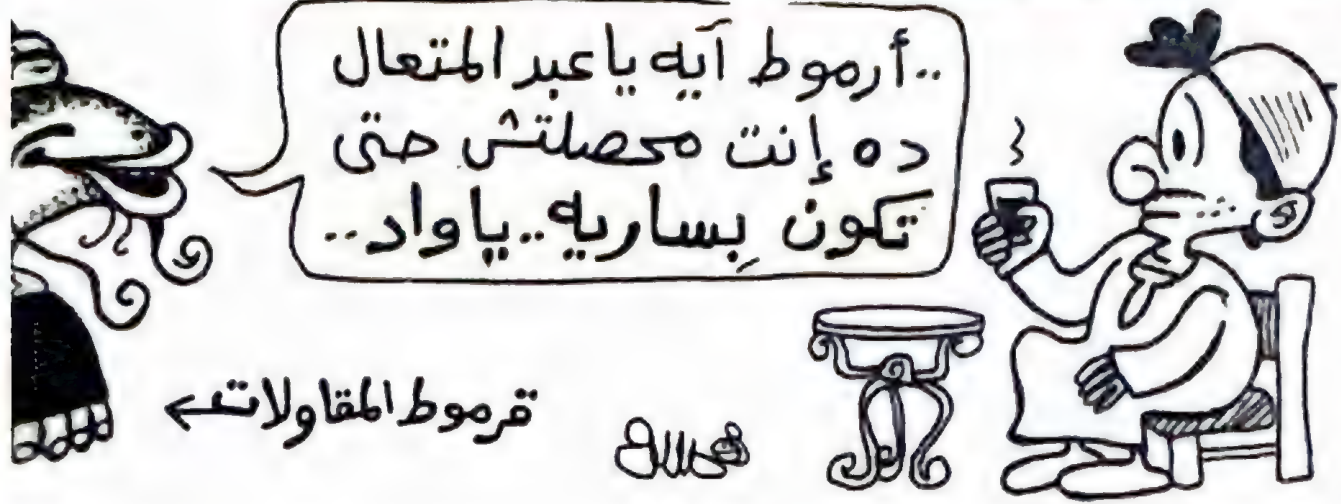 ..أرموط آيه يا عبد المتعال
ده إنت محصلتش حتى
تكون بِساريه..يا واد..
قرموط المقاولات